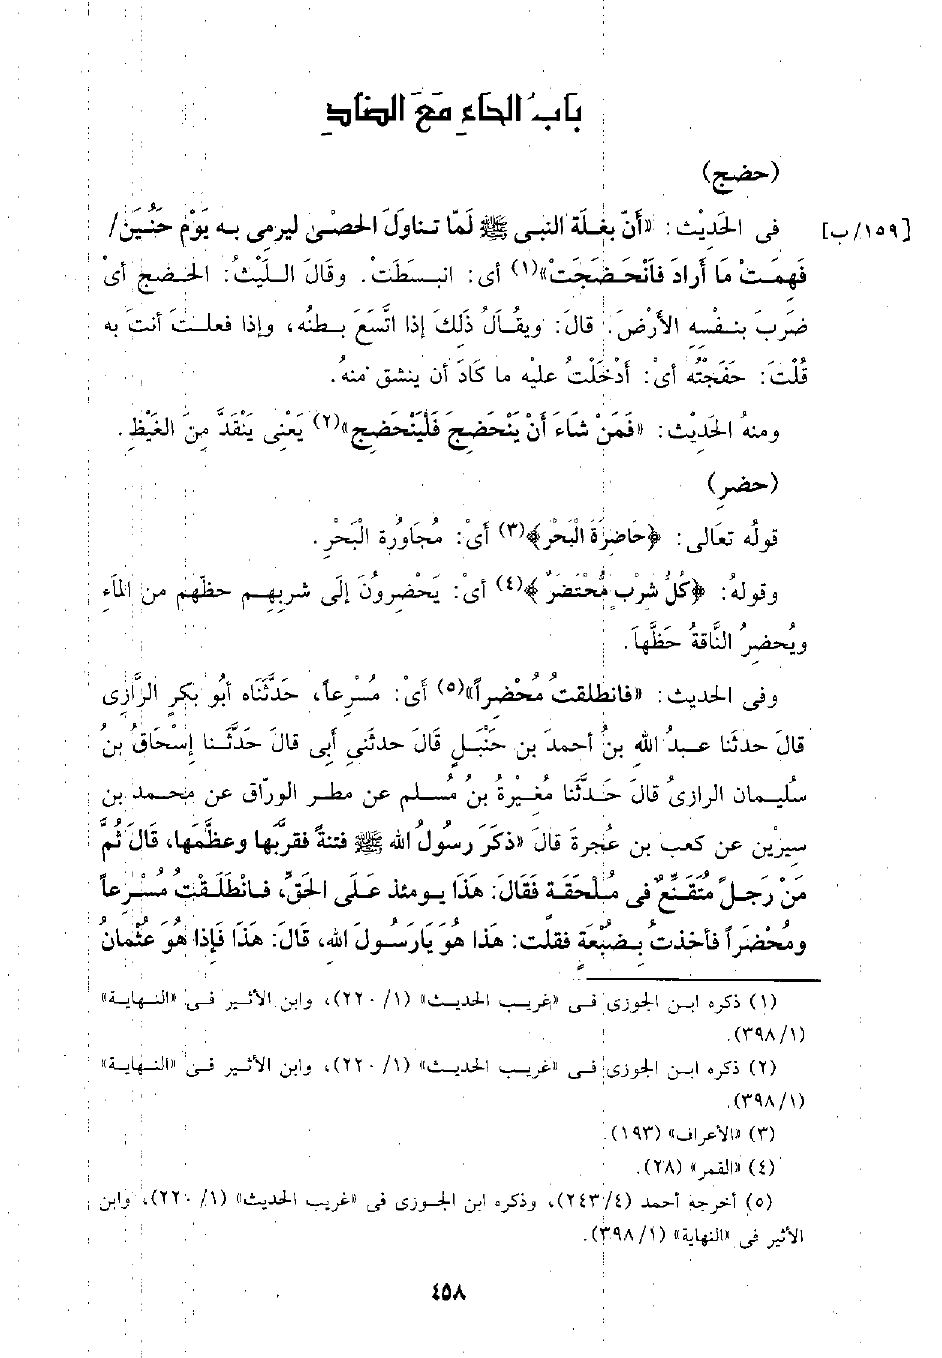 بَابُ الحَاءِ مَعَ الضَادِ
(حضج)
[١٥٩/ب] فى الحَدِيْثِ: «أَنّ بغلَة النبى ﷺ لَمّا تناولَ الحصْىَ ليرمى به يَوْمَ حُنَيْن/
فَهِمَتْ مَا أَرادَ فَانْحَضَجَتْ»(١) أى: انبسَطَتْ. وقَالَ الليْثُ: الحضج أىْ
ضَربَ بنفْسِه الأرْضَ. قالَ: ويقُالُ ذَلِكَ إذا اتَّسَعَ بطنُه، وإذا فعلتَ أنتَ به
قُلْتَ: حَفَجْتُه أىْ: أدْخَلْتُ عليْه ما كَادَ أن ينشق منهُ.
ومنهُ الحَدِيْث: «فَمَنْ شَاءَ أَنْ يَنْحَضِجَ فَلْيَنْحَضِج»(٢) يَعْنى يَنْقَدَّ مِنَ الغَيْظِ.
(حضر)
قولُه تعَالى: ﴿حَاضِرَةَ الْبَحْرِ﴾(٣) أىْ: مُجَاوِرة الْبَحْرِ.
وقولهُ: ﴿كُلُّ شِرْبٍ مُّحْتَضَرٌ﴾(٤) أىْ: يَحْضِرُونَ إِلَى شربِهِم حظّهُم من الماَءِ
ويُحضرُ النَّاقةُ حَظَّهاَ.
وفى الحديث: «فانطلقتُ مُحْضراً»(٥) أىْ: مُسْرعاً، حَدَّثَنَاه أبُو بكرٍ الرَّازى
قالَ حدثنَا عبدُ اللهِ بنُ أحمدَ بن حَنْبَلٍ قَالَ حدثنى أبى قالَ حَدَّثَنا إسْحَاقُ بنُ
سُليمان الرازىُ قالَ حَدَّثَنا مغيرةُ بنُ مُسلم عن مطر الورّاق عن محمد بن
سيرْين عن كعب بن عُجرةَ قالَ «ذكَرَ رسولُ الله ﷺ فتنةً فقربّها وعظّمها، قَالَ ثُمَّ
مَرّ رَجلٌ مُتَقَنِّعٌ فى مُلْحَفَة فَقَالَ: هَذَا يومئذ عَلَى الحَقِّ، فانْطَلَقْتُ مُسْرعاً
ومُحْضَراً فأخذتُ بِضَبْعَهِ فقلت: هَذا هُوَ يَارسُولَ اللهِ، قَالَ: هَذَا فَإذا هُوَ عثْمانُ
(١) ذكره ابن الجوزى فى «غريب الحديث» (١/ ٢٢٠)، وابن الأثير فى «النهاية»
(١/ ٣٩٨).
(٢) ذكره ابن الجوزى فى «غريب الحديث» (١/ ٢٢٠)، وابن الأثير فى «النهاية»
(١/ ٣٩٨).
(٣) «الأعراف» (١٩٣).
(٤) «القمر» (٢٨).
(٥) أخرجه أحمد (٢٤٣/٤)، وذكره ابن الجوزى فى «غريب الحديث» (١/ ٢٢٠)، وابن
الأثير فى «النهاية» (١/ ٣٩٨).
٤٥٨